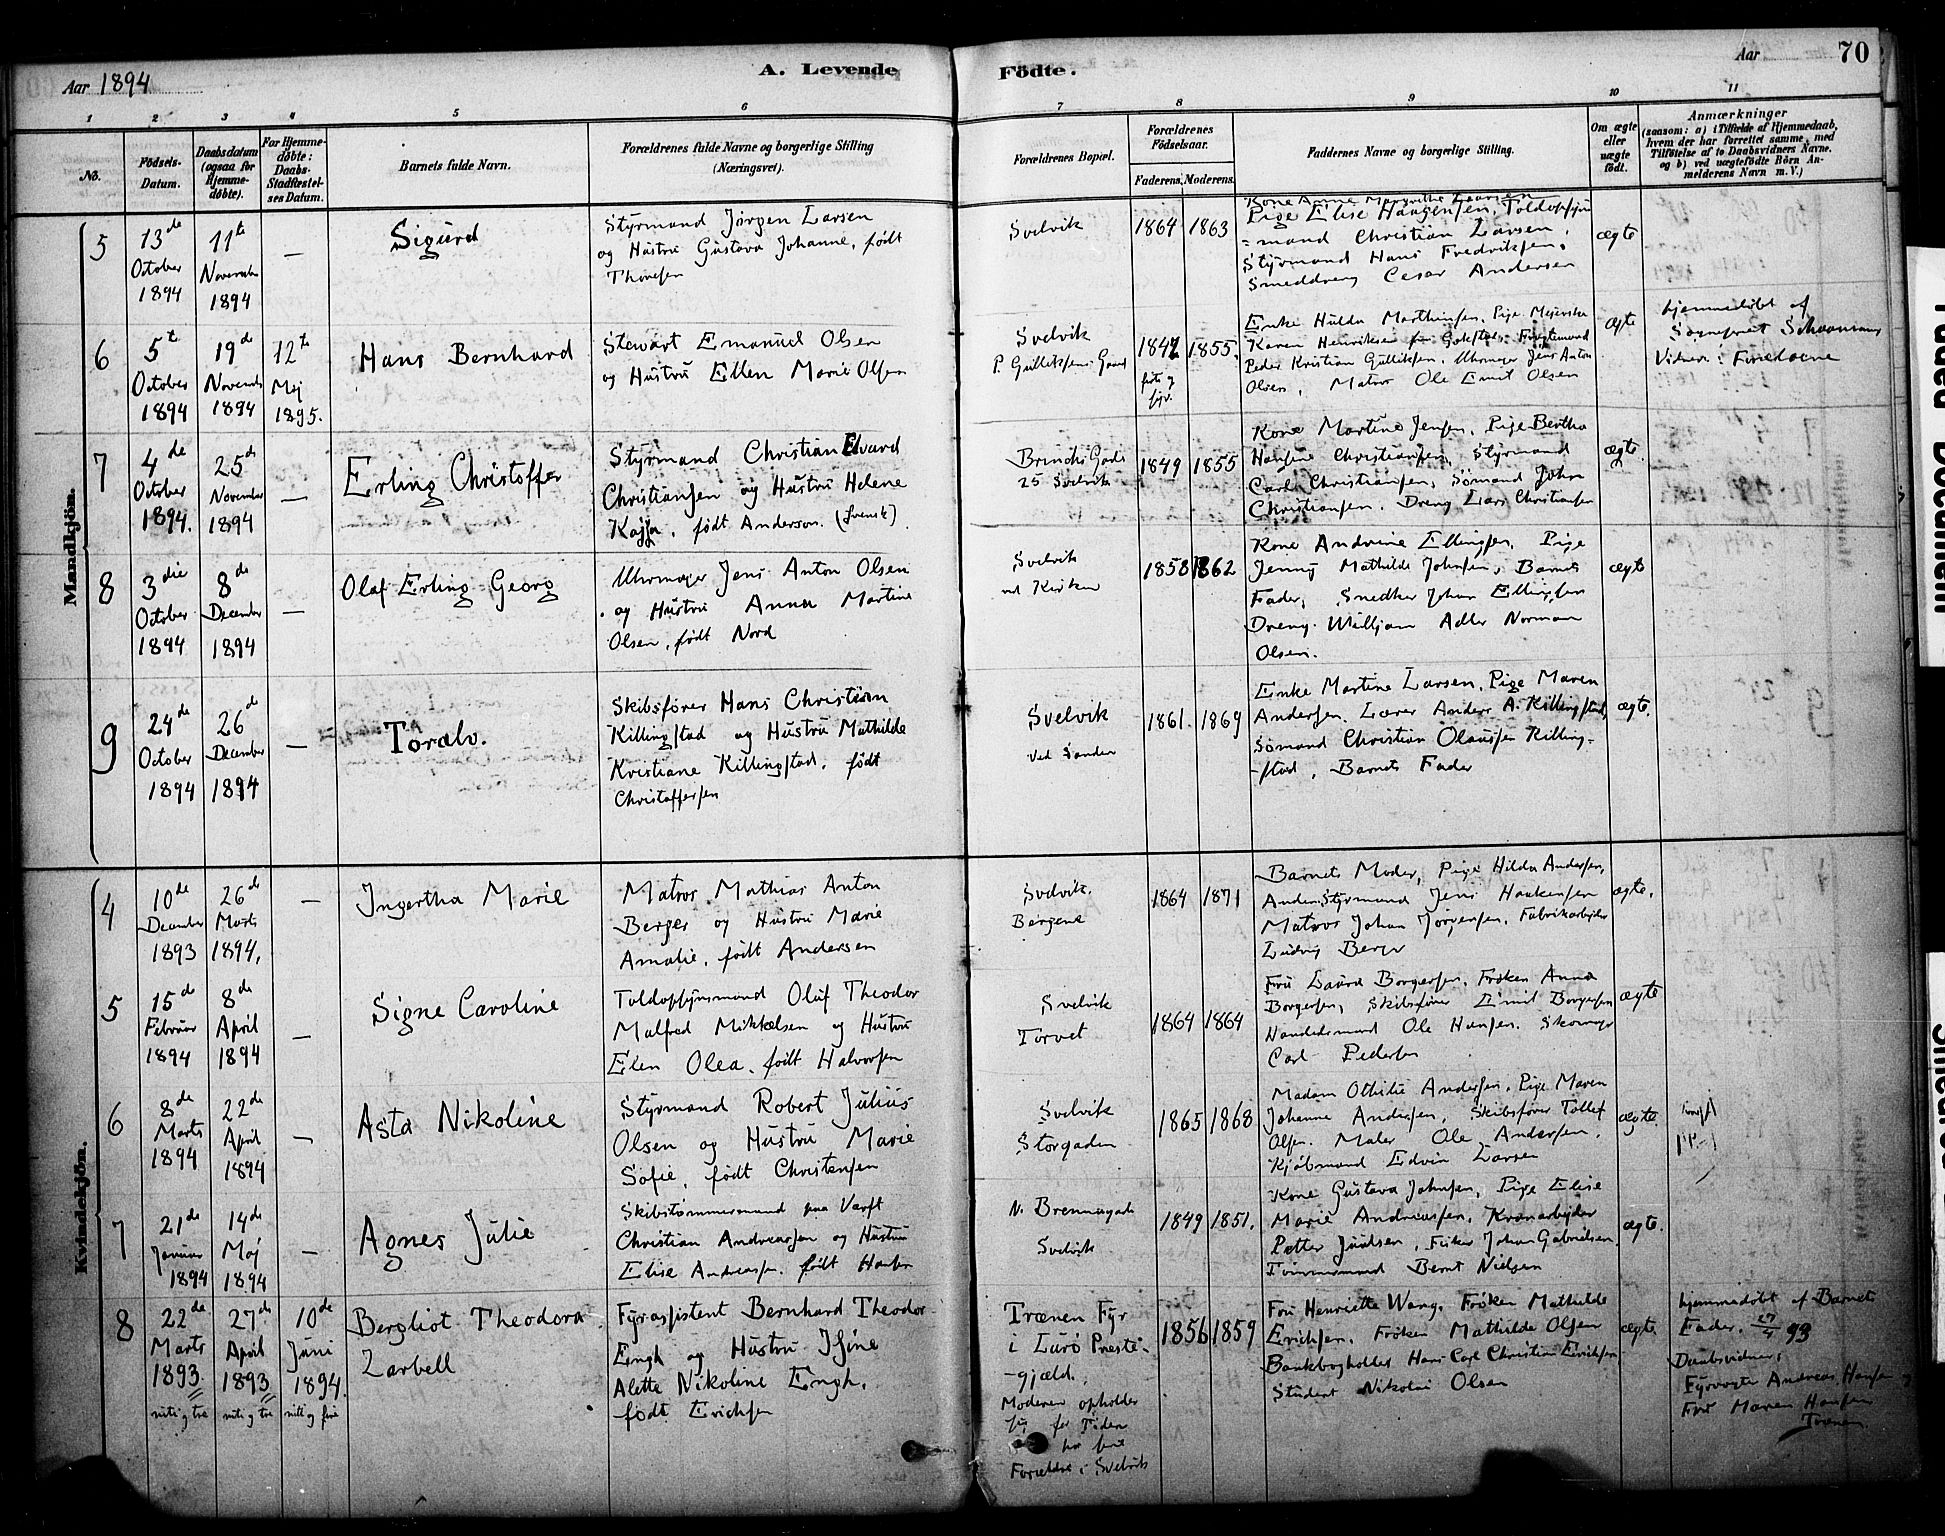 Aar 1894
A. Levende Födte.
Aar 70
1 2 3 4 5 6 7 8 9 10 11
No.
Födsels-Datum.
Daabsdatum (ogsaa for Hjemme-döbte).
For Hjemme-döbte: Daabs-Stadfæstel-ses Datum.
Barnets fulde Navn.
Forældrenes fulde Navne og borgerlige Stilling (Næringsvei).
Forældrenes Bopæl.
Forældrenes Födselsaar.
Faderens. Moderens.
Faddernes Navne og borgerlige Stilling.
Om ægte eller uægte födt.
Anmærkninger (saasom: a) i Tilfælde af Hjemmedaab, hvem der har forrettet samme, med Tilföielse af to Daabsvidners Navne. og b) ved uægtefödte Börn An-melderens Navn m. V.)
Mandkjön.
5
13de October 1894
11te November 1894
—
Sigurd
Styrmand Jörgen Larsen
og Hustru Gustava Johanne, födt
Thoresen
Svelvik
1864 1863
Pige Elise Haagensen, Toldopsyns
=mand Christian Larsen,
Styrmand Hans Fredriksen,
Smeddreng Cesar Andersen
ægte
6
5te October 1894
19de November 1894
12te Mej 1895.
Hans Bernhard
Stewart Emanuel Olsen
og Hustru Ellen Marie Olsen
Svelvik
P. Gulliksens Gaard
1842 1855.
Enke Hulda Marthinsen, Pige
Karen Henriksen
Peder Kristian Gulliksen, Uhrmager Jens Anton
Olsen, Matros Ole Emil Olsen
ægte
hjemmedöbt af
Sognepræst
Vidner: Forældrene
7
4de October 1894.
25de November 1894
—
Erling Christoffer
Styrmand Christian Edvard
Christiansen og Hustru Helene
Kajsa, födt Anderson. (svensk)
25 Svelvik
1849 1855
Kone Martine Jensen, Pige Bertha
Hansine Christiansen, Styrmand
Carl Christiansen, Sömand John
Christiansen. Dreng Lars Christiansen
ægte.
8
3die October 1894
8de December 1894
—
Olaf Erling Georg
Uhrmager Jens Anton Olsen
og Hustru Anna Martine
Olsen, födt Nord
Svelvik
ved Kirken
1858 1862
Kone Andrine Ellingsen, Pige
Jenny Mathilde Johnsen, Barnets
Fader, Snedker Johan Ellingsen
Dreng Willjam Adler Norman
Olsen.
ægte
9
24de October 1894
26de December 1894
—
Toralv.
Skibsförer Hans Christian
Killingstad og Hustru Mathilde
Kristiane Killingstad, födt
Christoffersen
Svelvik
ved Sanden
1861. 1869
Enke Martine Larsen, Pige Maren
Andersen. Lærer Anders A. Killingstad,
Sömand Christian Olaussen Killing-
-stad, Barnets Fader
ægte.
Kvindekjön.
4
10de December 1893
26de Marts 1894,
—
Ingertha Marie
Matros Mathias Anton
Berger og Hustru Marie
Amalie, födt Andersen
Svelvik.
Bergene
1864 1871
Barnets Moder, Pige Hilda Andersen,
Anden Styrmand Jens Haakensen
Matros Johan Jörgensen, Fabrikarbejder
Ludvig Berger
ægte.
5
15de Februar 1894
8de April 1894
—
Signe Caroline
Toldopsynsmand Oluf Theodor
Malfred Mikkelsen og Hustru
Elen Olea, födt Halvorsen
Svelvik
Torvet
1864 1864
Fru Laura Borgersen, Fröken Anna
Borgersen, Skibsförer Emil Borgersen
Handelsmand Ole Hansen. Skomager
Carl Pedersen
ægte
6
8de Marts 1894
22de April 1894
—
Asta Nikoline
Styrmand Robert Julius
Olsen og Hustru Marie
Sofie, födt Christensen
Svelvik
Storgaden
1865 1868
Madam Othilie Andersen, Pige Maren
Johanne Andersen, Skibsförer Tollef
Olsen. Maler Ole Andersen,
Kjöbmand Edvin Larsen
ægte.
7
21de Januar 1894
14de Maj 1894
—
Agnes Julie
Skibstömmermand paa Værft
Christian Andreassen og Hustru
Elise Andreassen, födt Hansen
N. Brennagade
Svelvik
1849 1851.
Kone Gustava Johnsen, Pige Elise
Marie Andreassen, Kranarbejder
Petter Juulsen, Fisker Johan Gabrielsen,
Tömmermand Bernt Nielsen
ægte.
8
22de Marts 1893. nitti og tre
27de April 1893 nitti og tre
10de Juni 1894. nitti og fire
Bergliot Theodora
Zarbell
Fyrassistent Bernhard Theodor
Engh og Hustru Isine
Aletta Nikoline Engh,
födt Erichsen
Trænen Fyr
i Lurö Preste-
-gjæld.
Moderen opholder
sig for Tiden
hos sine
Forældre i Svelvik
1856 1859
Fru Henriette Wang, Fröken Mathilde
Erichsen, Fröken Mathilde Olsen
Bankbogholder Hans Carl Christian Erichsen
Student Nikolai Olsen
ægte.
hjemmedöbt af Barnets
Fader. 27/4 93
Daabsvidner:
Fyrvogter Andreas Hansen og
Fru Maren Hansen
Trænen